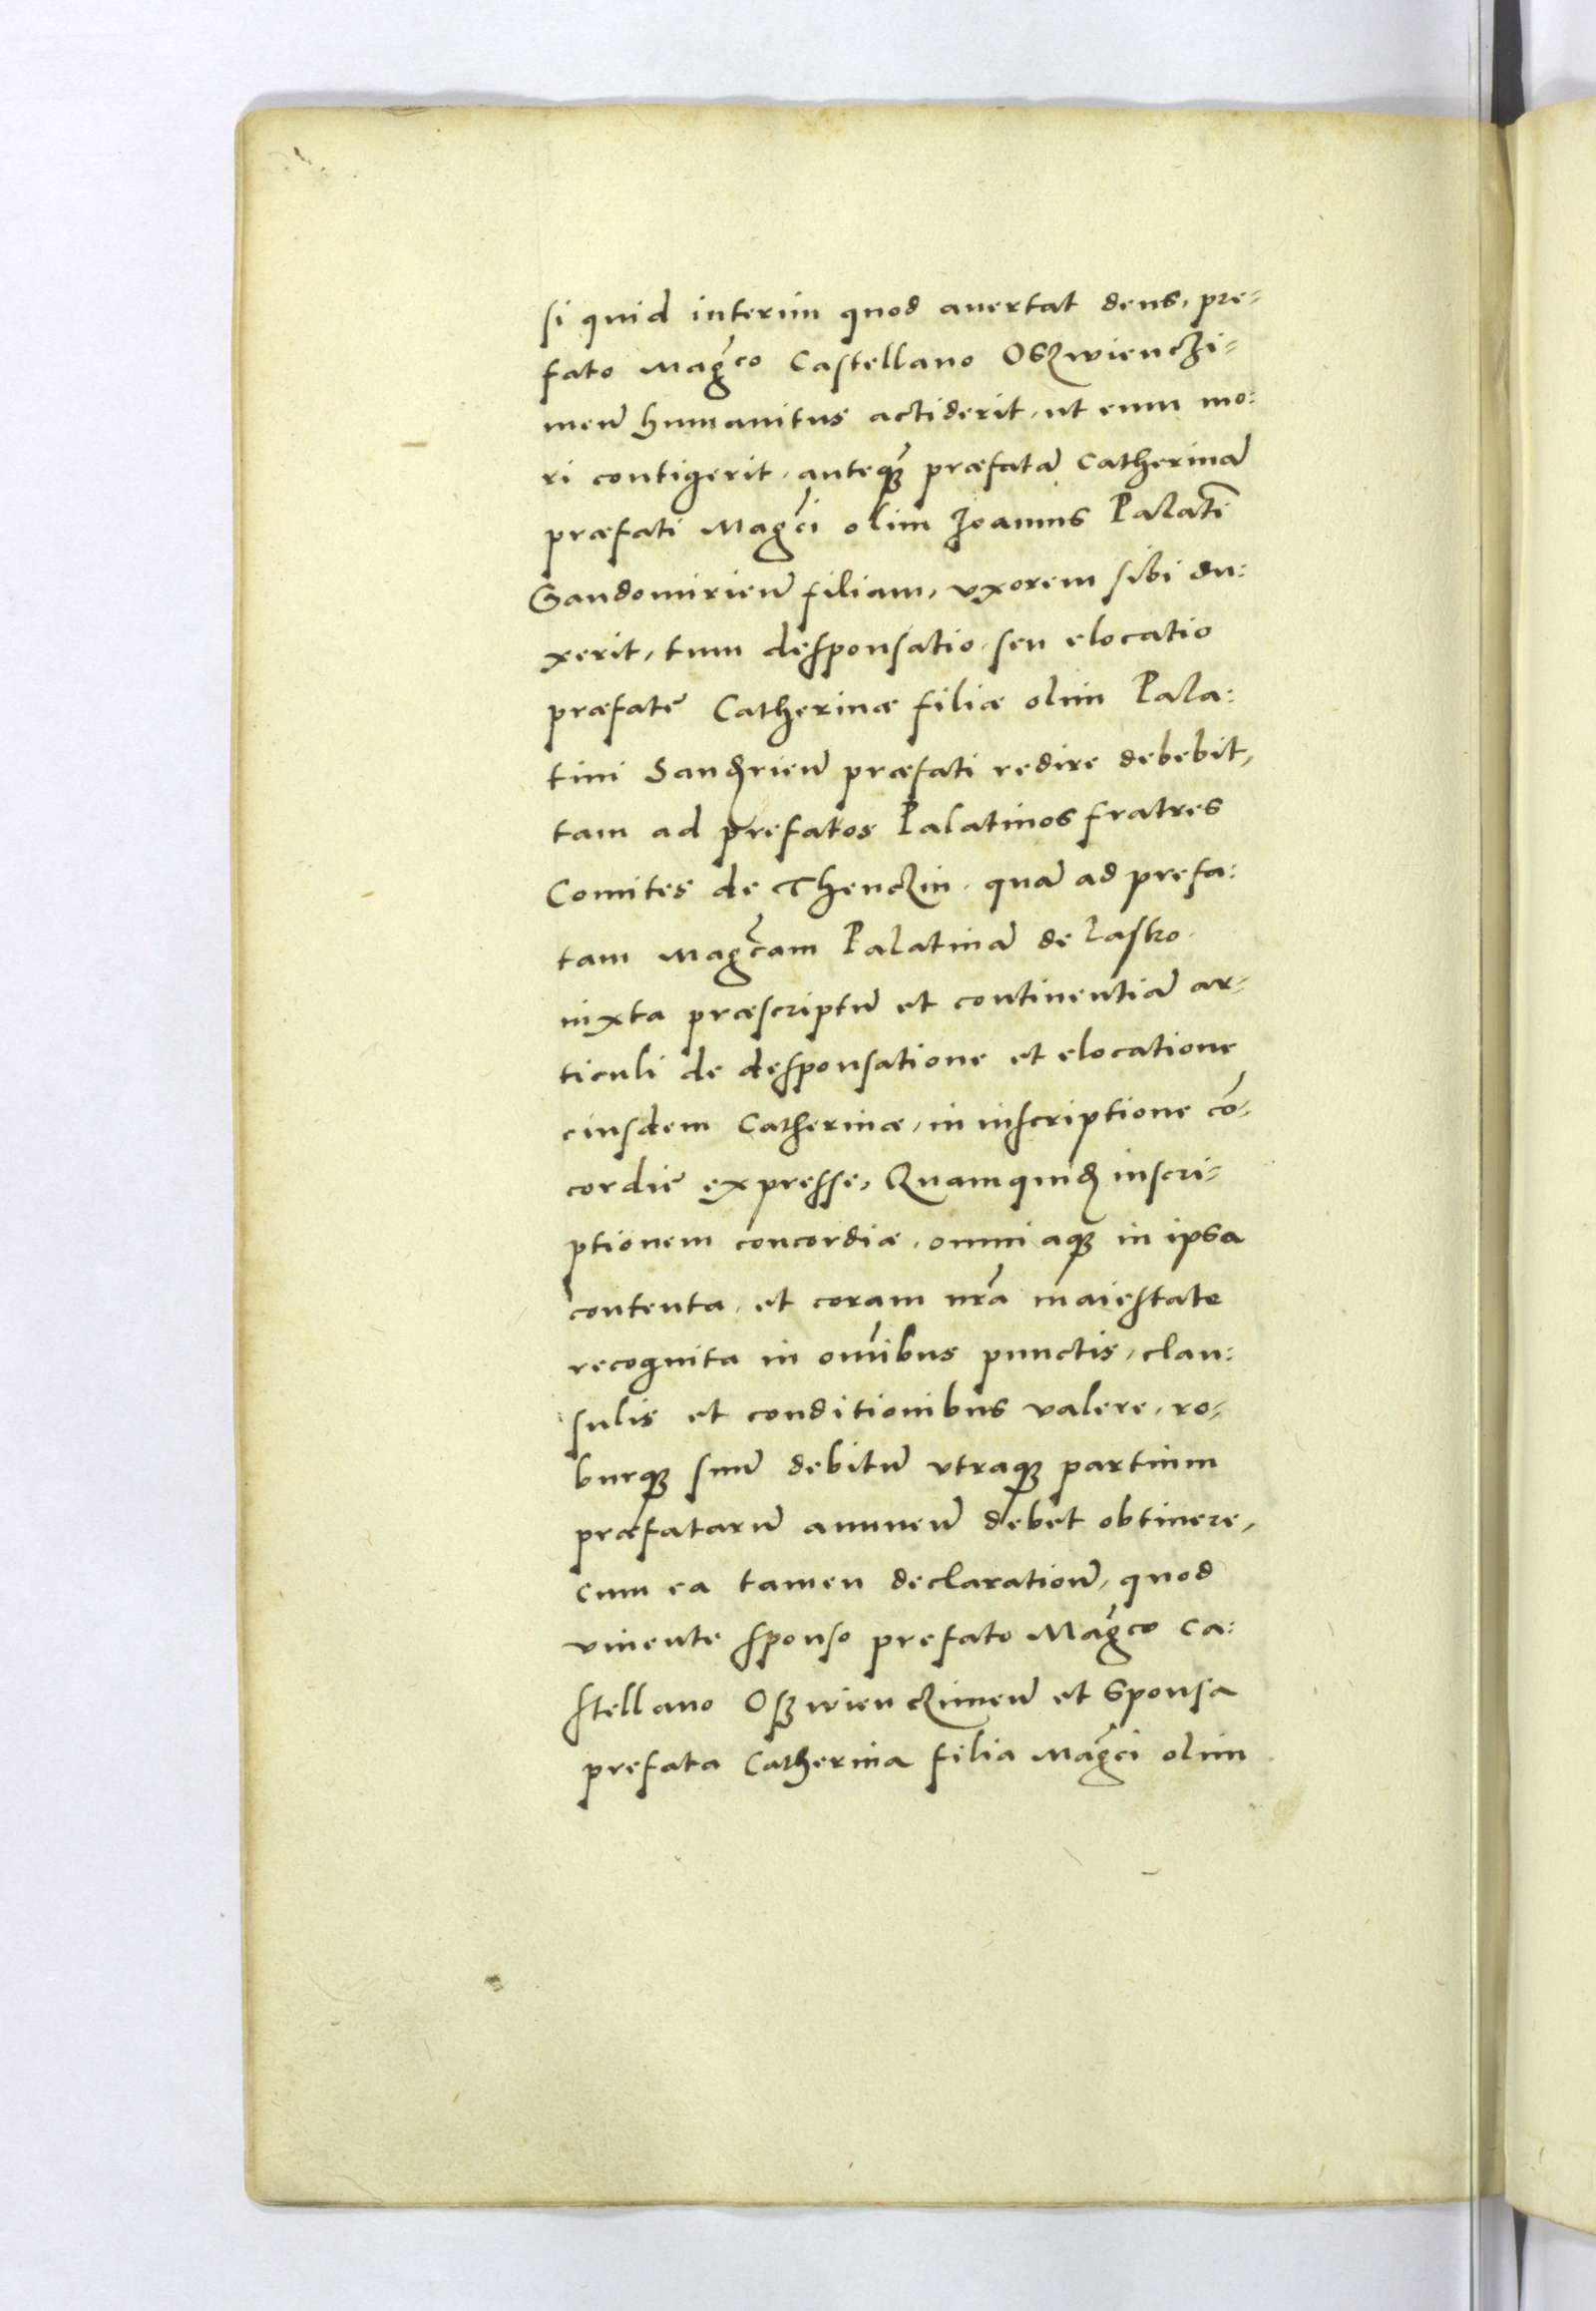 si quid interim quod auertat deus, pre-
fato Mag͠co Castellano Oszwienczi-
men̄ humanitus acciderit, ut eum mo:
ri contigerit, anteq̄ꝫ præfatā Catherinā
præfati Mag͠ci olim Joannis Palatī
Sandomirien̄ filiam, vxorem sibi du:
xerit, tum desponsatio, seu elocatio
præfatę Catherinæ filiæ olim Pala:
tini Sandꝫrien̄ præfati redire debebit,
tam ad prefatos Palatinos fratres
Comites de Thenczin, quā ad prefa:
tam Mag͠cam Palatinā de Lasko
iuxta præscriptū et continentiā ar-
ticuli de desponsatione et elocatione
eiusdem Catherinæ, in inscriptione cō-
cordię expresse, Quamquidꝫ inscri-
ptionem concordiæ, omniaqꝫ in ipsa
contenta, et coram nr̄a maiestate
recognita in om̄ibus punctis, clau:
sulis et conditionibus valere, ro-
burqꝫ suū debitū vtraqꝫ partium
præfatarū annuen̄ debet obtinere,
cum ea tamen declaration̄, quod
viuente sponso prefato Mag͠co Ca:
stellano Oszwienczimen̄ et sponsa
prefata Catherina filia Mag͠ci olim